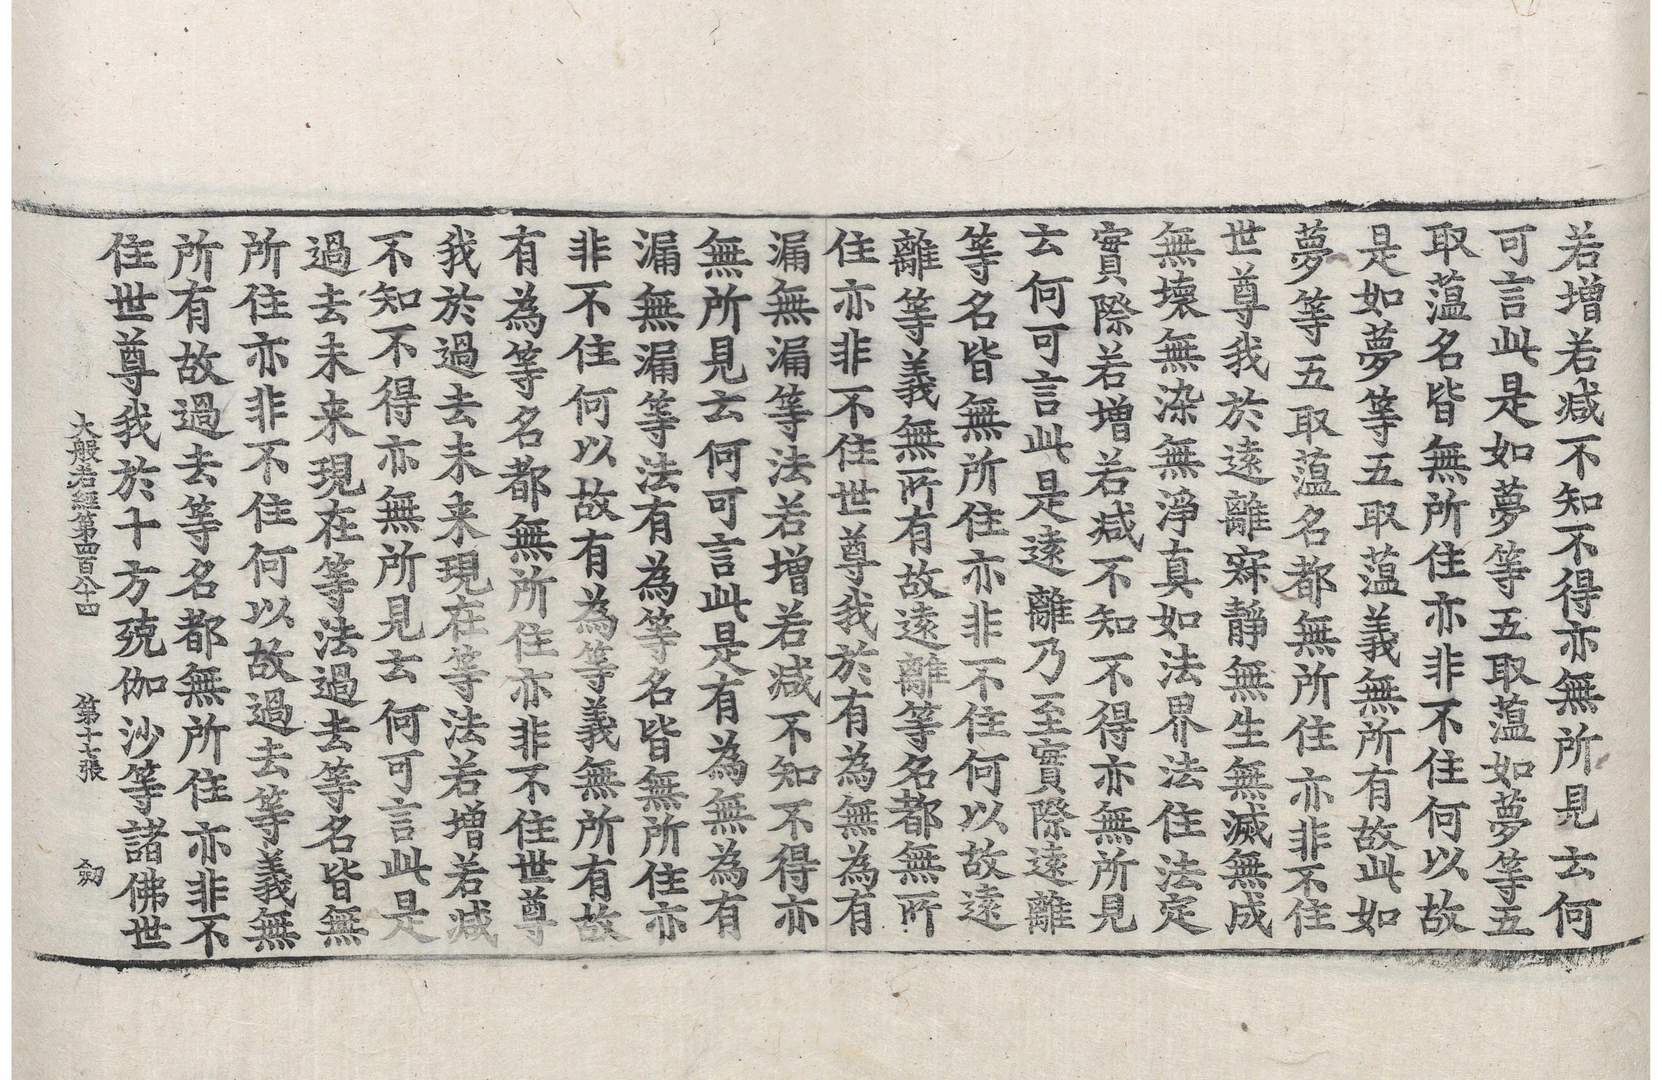 若增若减不知不得亦無所見云何
可言此是如夢等五取薀如夢等五
取薀名皆無所住亦非不住何以故
是如夢等五取薀義無所有故此如
夢等五取薀名都無所住亦非不住
世尊我於遠離寂靜無生無滅無成
無壞無染無淨真如法界法住法定
實際若增若减不知不得亦無所見
云何可言此是遠離乃至實際遠離
等名皆無所住亦非不住何以故遠
離等義無所有故遠離等名都無所
住亦非不住世尊我於有為無為有
漏無漏等法若增若减不知不得亦
無所見云何可言此是有為無為有
漏無漏等法有為等名皆無所住亦
非不住何以故有為等義無所有故
有為等名都無所住亦非不住世尊
我於過去未来現在等法若增若减
不知不得亦無所見云何可言此是
過去未来現在等法過去等名皆無
所住亦非不住何以故過去等義無
所有故過去等名都無所住亦非不
住世尊我於十方殑伽沙等諸佛世
大般若經第四百八十四 第十七張 劒